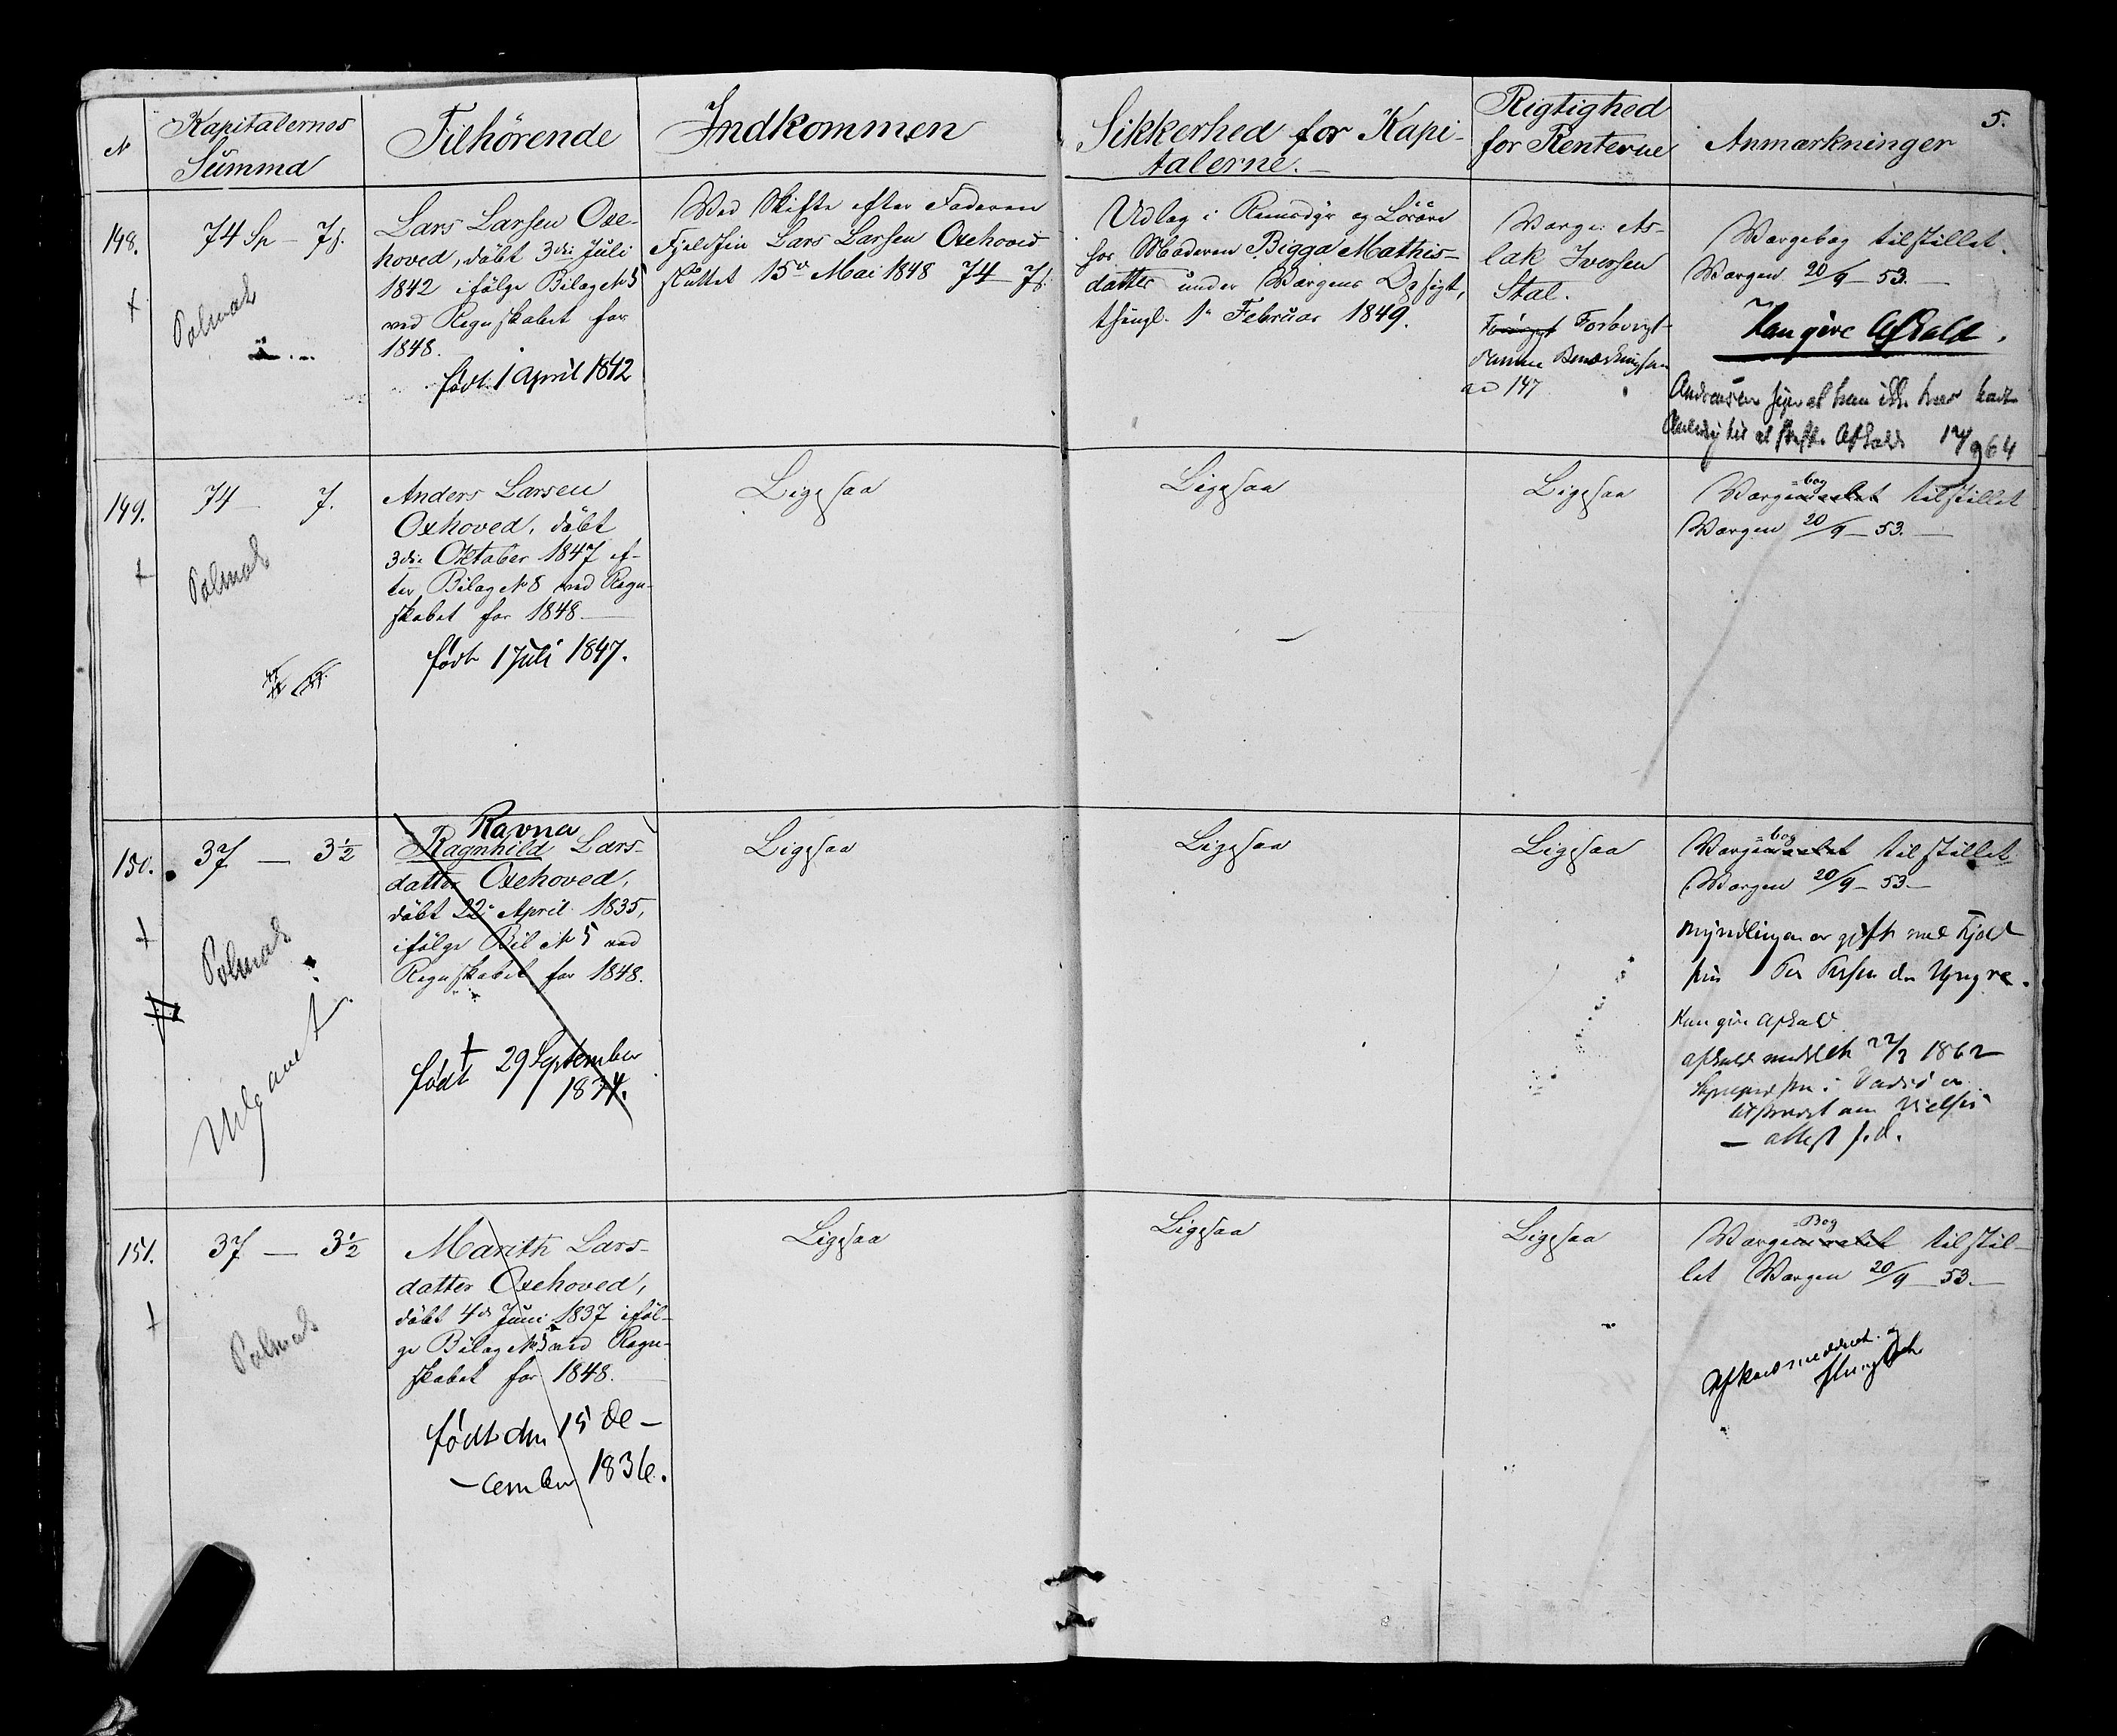 5.
N
Kapitalernes
Summa
Tilhörende
Indkommen
Sikkerhed for Kapi-
talerne.
Rigtighed
for Renterne
Anmærkninger
148.
74 Sp – 7 s.
Polmak
Lars Larsen Oxe-
hoved, döbt 3die Juli
1842 ifölge Bilag N 5
ved Regnskabet for
1848.
födt 1 April 1842
Ved Skifte efter Faderen
Fjeldfin Lars Larsen Oxehoved
sluttet 15de Mai 1848 74 – 7 s.
Udlag i Rensdyr og Lösöre
hos Moderen Bigga Mathis-
datter under Værgens Opsigt,
thingl. 1te Februar 1849.
Værge: As-
lak Iversen
Stal.
Forövrigt
samme Bemærkning som
ad 147
Værgebog tilstillet
Værgen 20/9 – 53.
Kan give Afkald.
Andersen siger at han ikke har havt
Anledning til at skaffe Afkald 64
149.
74 – 7.
Polmak
Anders Larsen
Oxhoved, döbt
3die Oktober 1847 ef-
ter Bilag N 8 ved Regn-
skabet for 1848.
födt 1 Juli 1847.
Ligesaa
Ligesaa
Ligesaa
=bog
Værge tilstillet
Værgen 20/9 – 53.
150.
37 – 3½
Polmak
Udgaaet
Ravna
Ragnhild Lars-
datter Oxehoved,
döbt 22de April 1835,
ifölge Bil N 5 ved
Regnskabet for 1848.
födt 29 September
1834.
Ligesaa
Ligesaa
Ligesaa
=bog
Værge tilstillet
Værgen 20/9 – 53
Myndlingen er gift med Fjeld
fin Per Persen den Yngre.
Kan give Afkald
afkald meddelt 22/3 1862
i Vadsö er
om Vielses
– attest s.d.
151.
37 – 3½
Polmak
Marith Lars-
datter Oxehoved,
döbt 4de Juni 1837 iföl-
ge Bilag N 5 ved Regn-
skabet for 1848.
födt den 15 De-
-cember 1836.
Ligesaa
Ligesaa
Ligesaa
=Bog
Værge tilstil-
let Værgen 20/9 – 53.
Afkald meddelt og